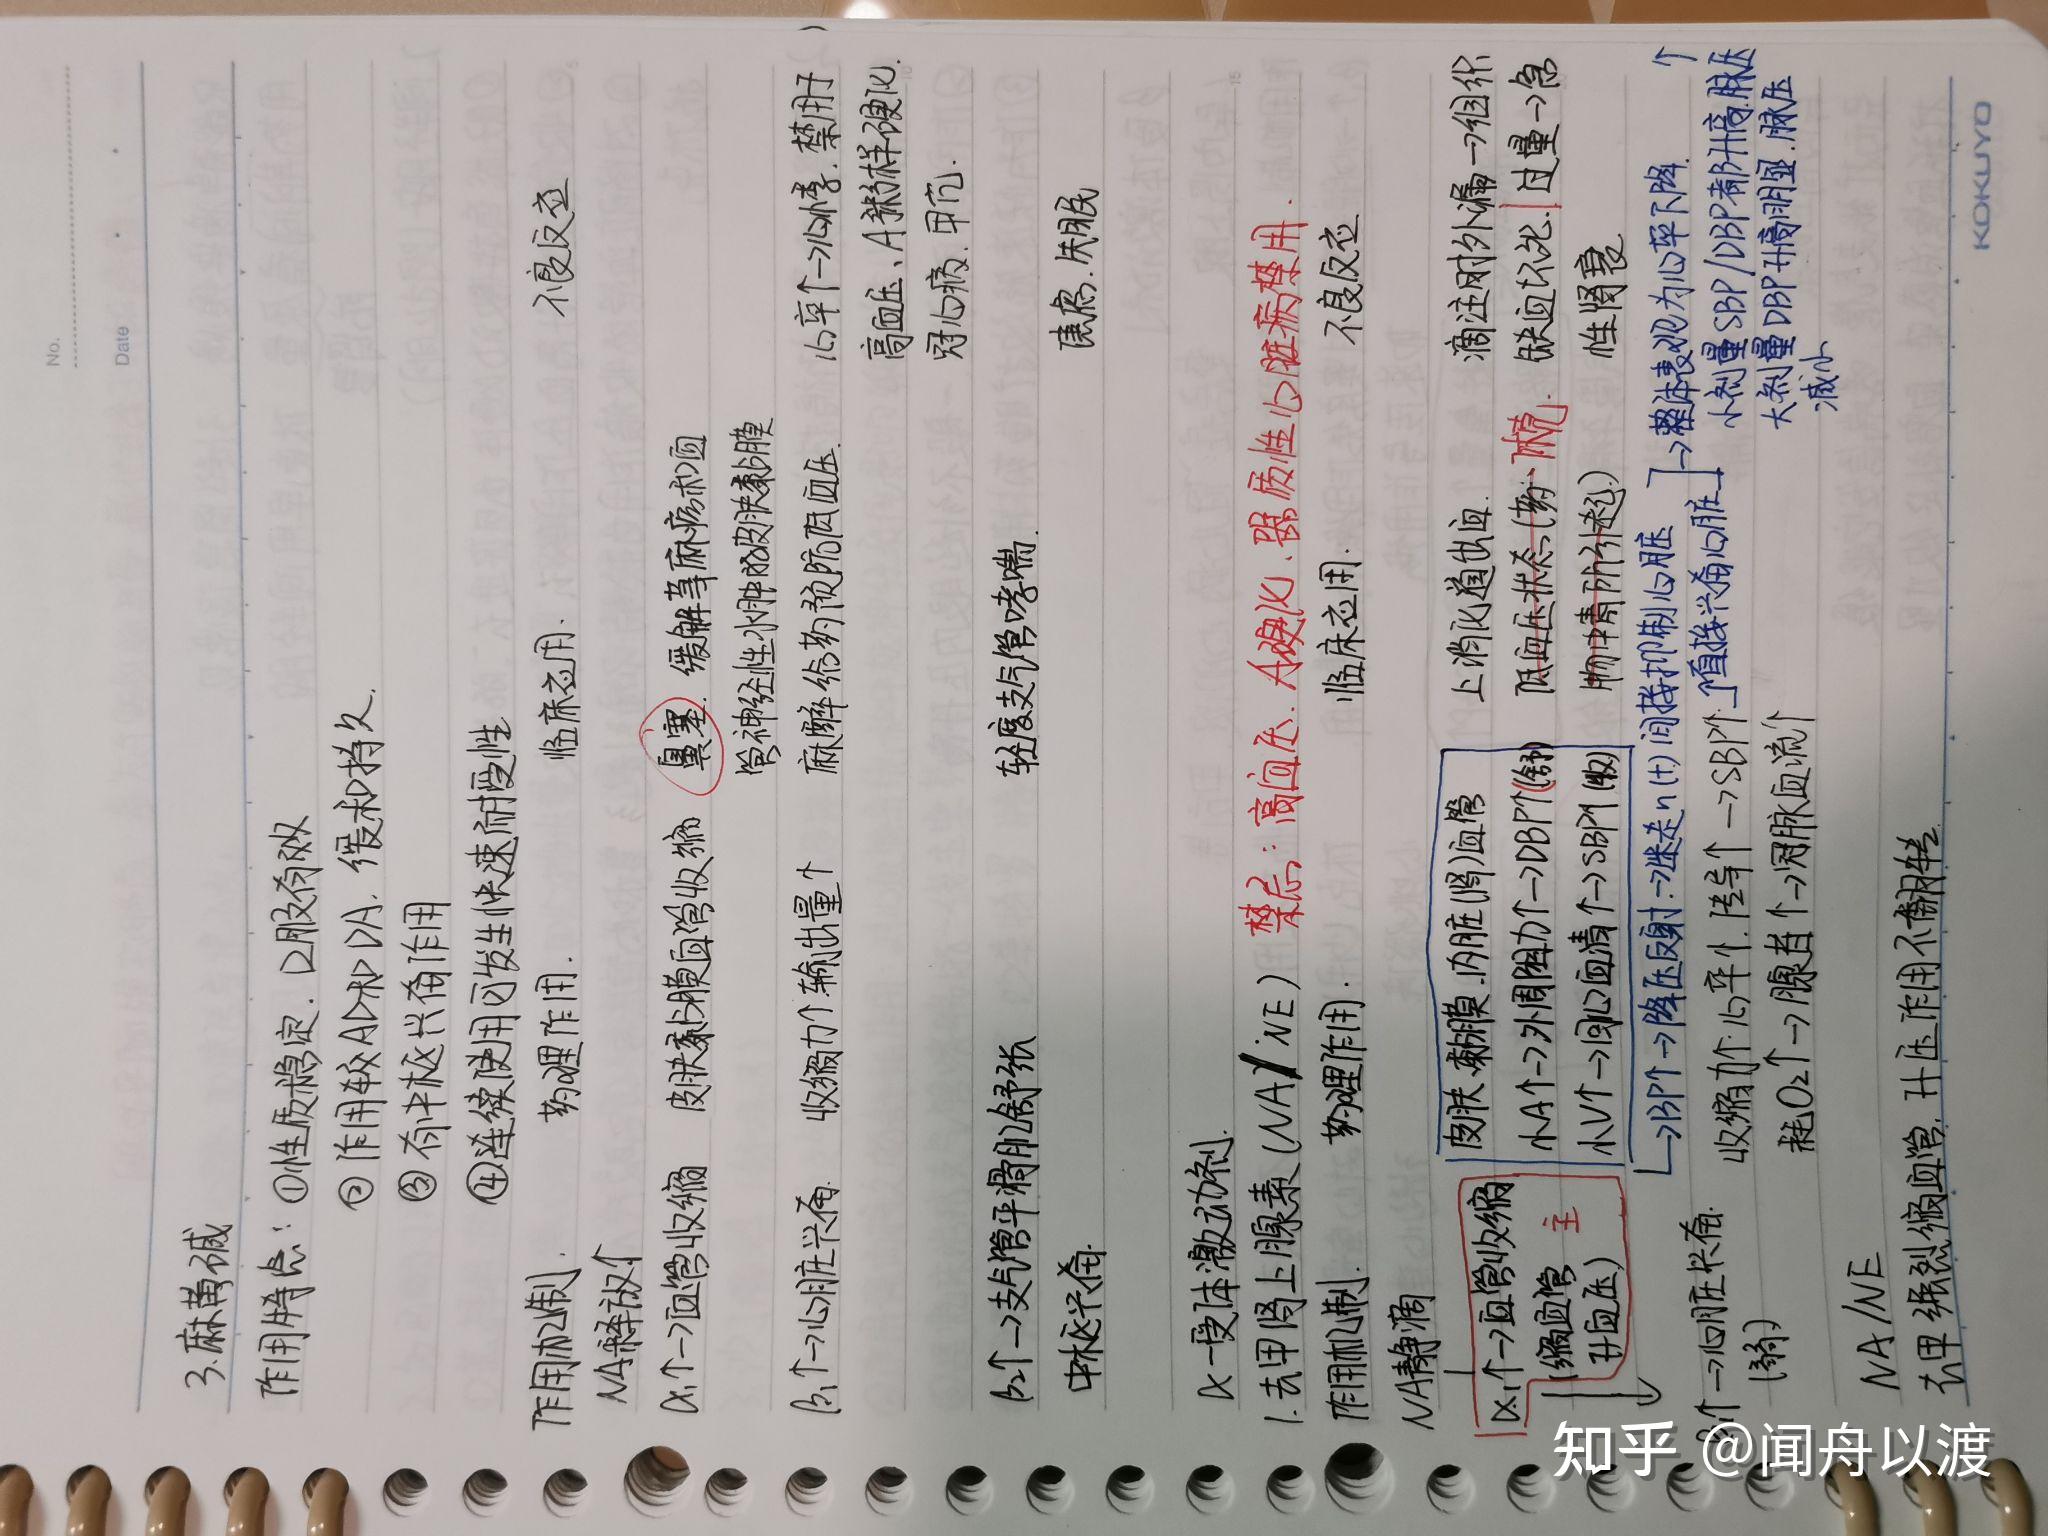 No.
Date
3. 麻黄碱
作用特点：①性质稳定．口服有效
②作用较AD和DA．缓和持久．
③有中枢兴奋作用
④连续使用可发生快速耐受性
作用机制． 药理作用． 临床应用． 不良反应
NA释放↑
α₁↑→血管收缩 皮肤黏膜血管收缩 鼻塞．缓解荨麻疹和血
管神经性水肿的皮肤黏膜
β₁↑→心脏兴奋． 收缩力↑输出量↑ 麻醉给药预防低血压． 心率↑→心悸．禁用于
高血压、A粥样硬化．
冠心病．甲亢．
β₂↑→支气管平滑肌舒张 轻度支气管哮喘．
中枢兴奋． 焦虑．失眠
α－受体激动剂．
1．去甲肾上腺素（NA/NE） 禁忌：高血压．A硬化．器质性心脏病禁用．
作用机制． 药理作用． 临床应用． 不良反应
NA静滴
α₁↑→血管收缩 皮肤．黏膜．内脏（肾）血管 上消化道出血． 滴注时外漏→组织
（缩血管 主 小A↑→外周阻力↑→DBP↑（舒） 低血压状态（药 休克． 缺血坏死．过量→急
升血压） 小V↑→回心血清↑→SBP↑（收） 物中毒所引起） 性肾衰
→BP↑→降压反射：→迷走n（+）间接抑制心脏 →整体表现为心率下降．
β₁↑→心脏兴奋． 收缩力↑心率↑．传导↑→SBP↑ 直接兴奋心脏 小剂量SBP/DBP都升高．脉压↑
（弱） 耗O₂↑→腺苷↑→冠脉血流↑ 大剂量DBP升高明显．脉压
减小
NA/NE
去甲强烈缩血管，升压作用不翻转
KOKUYO
知乎 @闻舟以渡